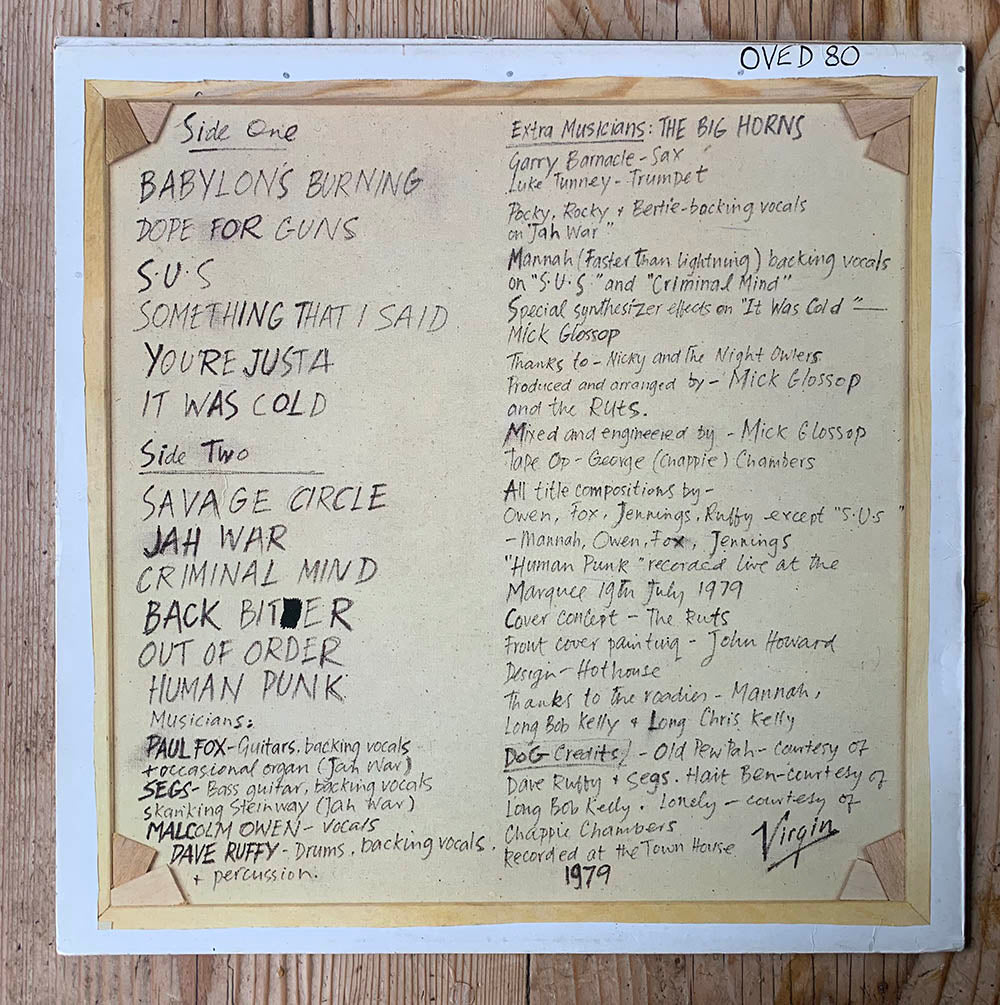 OVED 80
Side One
BABYLON'S BURNING
DOPE FOR GUNS
S·U·S
SOMETHING THAT I SAID
YOU'RE JUST A
IT WAS COLD
Side Two
SAVAGE CIRCLE
JAH WAR
CRIMINAL MIND
BACK BITER
OUT OF ORDER
HUMAN PUNK
Musicians:
PAUL FOX - Guitars, backing vocals
+ occasional organ (Jah War)
SEGS - Bass guitar, backing vocals
skanking Steinway (Jah War)
MALCOLM OWEN - vocals
DAVE RUFFY - Drums, backing vocals,
+ percussion.
Extra Musicians: THE BIG HORNS
Garry Barnacle - Sax
Luke Tunney - Trumpet
Pocky, Rocky + Bertie - backing vocals
on "Jah War"
Mannah (Faster Than Lightning) backing vocals
on "S·U·S" and "Criminal Mind"
Special synthesizer effects on "It Was Cold" —
Mick Glossop
Thanks to - Nicky and The Night Owlers
Produced and arranged by - Mick Glossop
and the Ruts.
Mixed and engineered by - Mick Glossop
Tape Op - George (Chappie) Chambers
All title compositions by -
Owen, Fox, Jennings, Ruffy except "S·U·S"
- Mannah, Owen, Fox, Jennings
"Human Punk" recorded live at the
Marquee 19th July 1979
Cover concept - The Ruts
Front cover painting - John Howard
Design - Hothouse
Thanks to the roadies - Mannah,
Long Bob Kelly + Long Chris Kelly
DOG Credits - Old Pew Tah - courtesy of
Dave Ruffy + Segs. Hait Ben - courtesy of
Long Bob Kelly. Lonely - courtesy of
Chappie Chambers
Recorded at the Town House
1979
Virgin